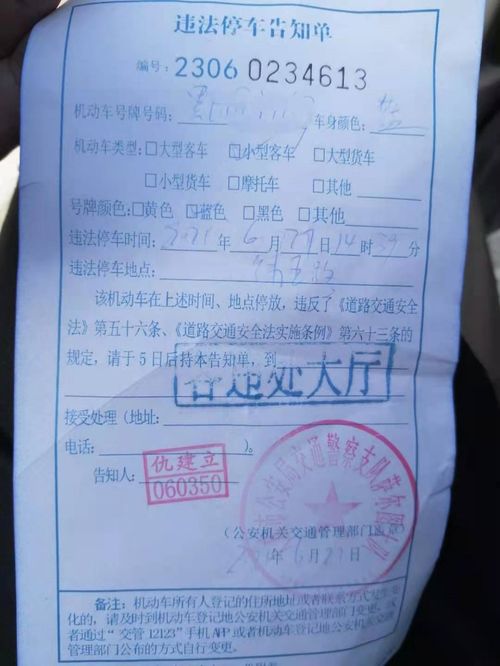 违法停车告知单
编号:2306 0234613
机动车号牌号码: 黑 车身颜色: 蓝
机动车类型:□大型客车 ☑小型客车 □大型货车
□小型货车 □摩托车 □其他
号牌颜色:□黄色 ☑蓝色 □黑色 □其他
违法停车时间: 2021 年 6 月 27 日 14 时 39 分
违法停车地点:
该机动车在上述时间、地点停放,违反了《道路交通安全
法》第五十六条、《道路交通安全法实施条例》第六十三条的
规定,请于5日后持本告知单,到
各违处大厅
接受处理(地址:
电话: )。
告知人:
仇建立
060350
公安局交通警察支队萨尔图大队
(公安机关交通管理部门盖章)
2021年 6月 27日
备注:机动车所有人登记的住所地址或者联系方式发生变
化的,请及时到机动车登记地公安机关交通管理部门变更,或
者通过“交管12123”手机APP或者机动车登记地公安机关交通
管理部门公布的方式自行变更。